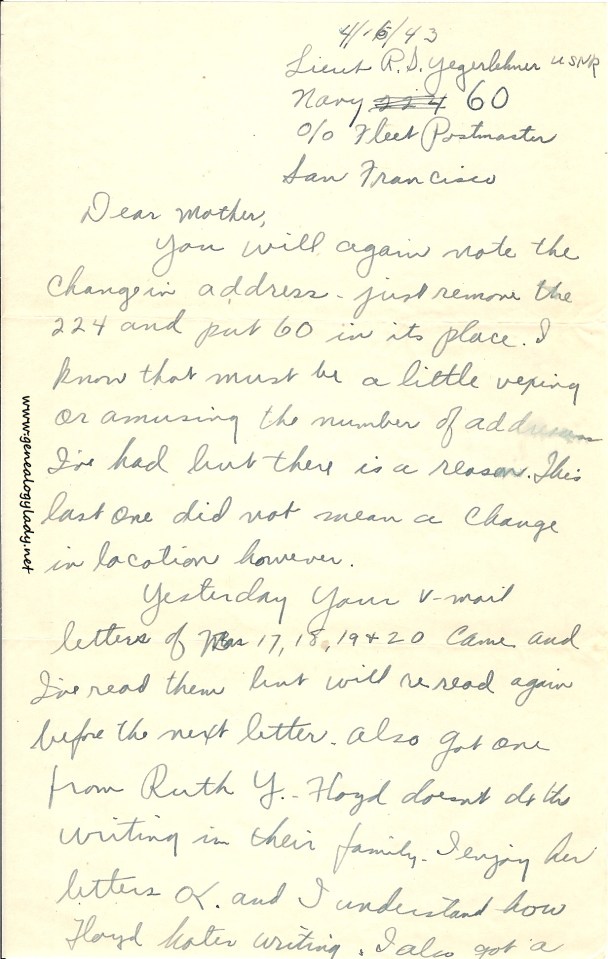 4/15/43
Lieut R.D. Yegerlehner USNR
Navy 224 60
c/o Fleet Postmaster
San Francisco
Dear Mother,
You will again note the
change in address - just remove the
224 and put 60 in its place. I
know that must be a little vexing
or amusing the number of addresses
I've had but there is a reason. This
last one did not mean a change
in location however.
Yesterday your v-mail
letters of Mar 17, 18, 19 + 20 came and
I've read them but will re read again
before the next letter. Also got one
from Ruth Y. - Floyd doesnt do the
writing in their family. I enjoy her
letters OK. and I understand how
Floyd hates writing. I also got a
www.genealogylady.net